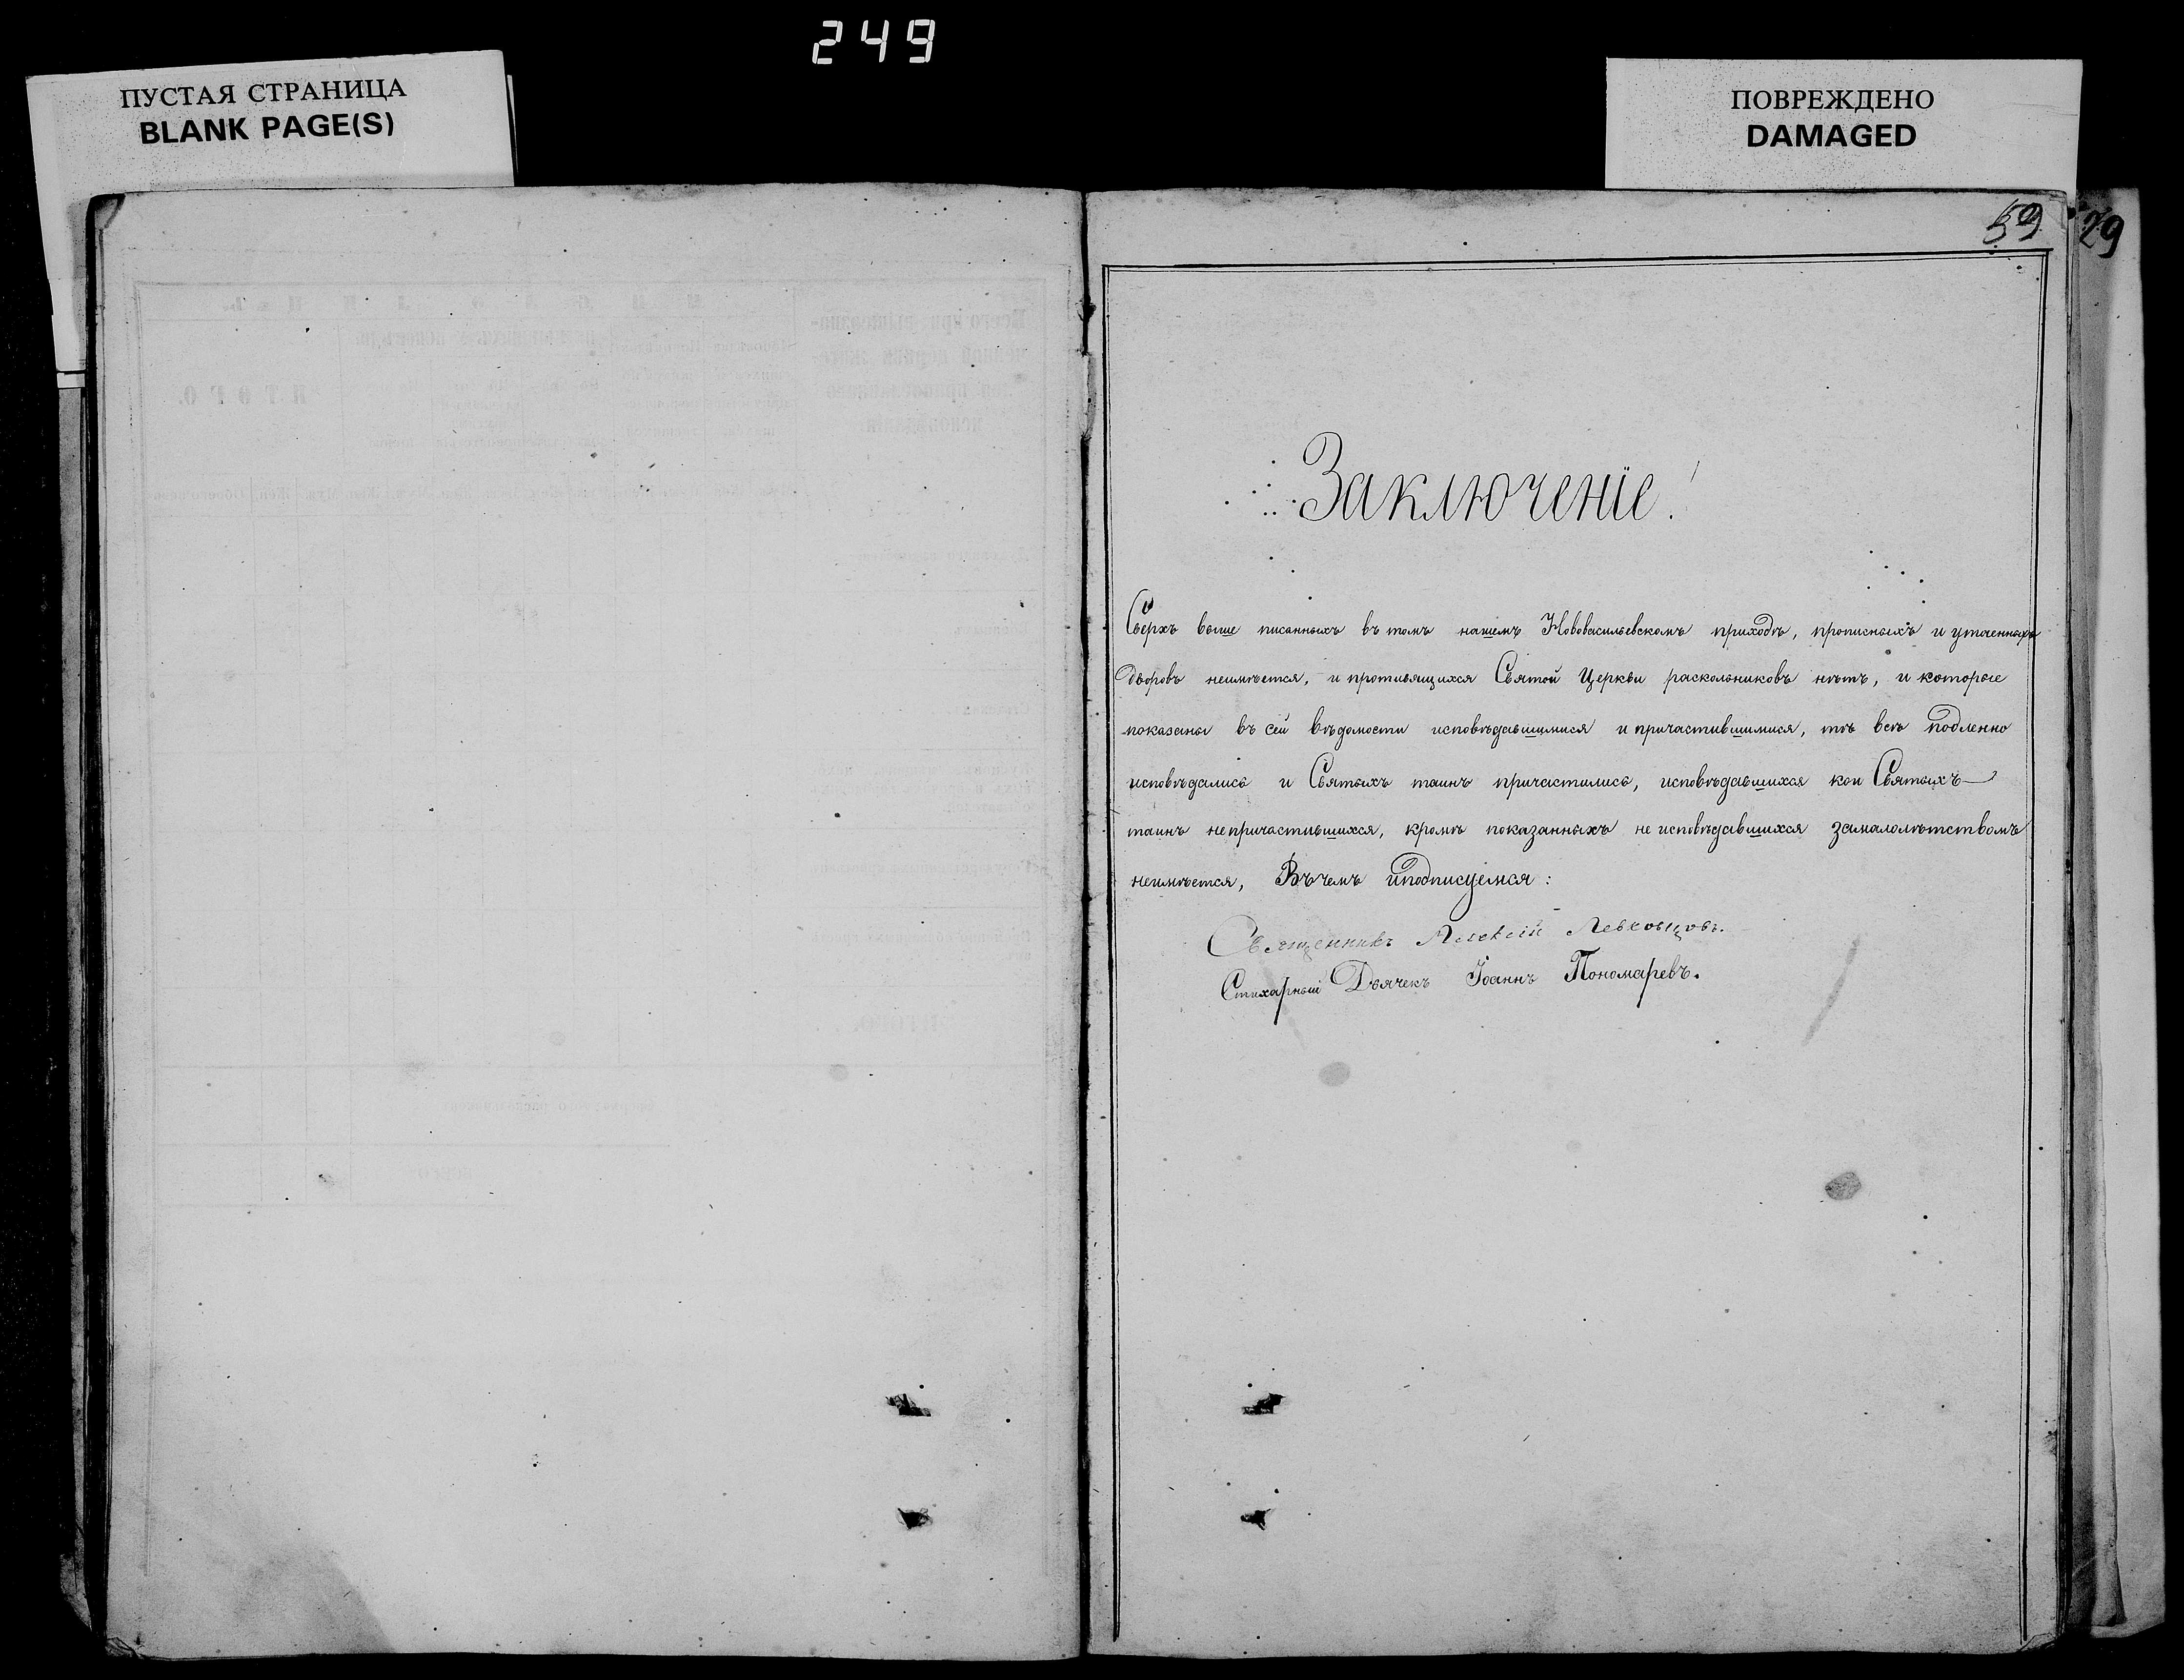 249
ПУСТАЯ СТРАНИЦА
BLANK PAGE(S)
ПОВРЕЖДЕНО
DAMAGED
59
29
Заключеніе!
Сверхъ выше писанныхъ въ томъ нашемъ Нововасильевскомъ приходѣ, прописныхъ и утаенныхъ
дворовъ неимѣется, и противящихся Святой Церкви раскольниковъ нѣтъ, и которые
показаны въ сей вѣдомости исповѣдавшимися и причастившимися, тѣ всѣ подленно
исповѣдались и Святыхъ таинъ причастились, исповѣдавшихся кои Святыхъ
таинъ непричастившихся, кромѣ показанныхъ не исповѣдавшихся замалолѣтствомъ
неимѣется, Въ чемъ иподписуемся:
Священникъ Алексій Левковцовъ.
Стихарный Дьячекъ Іоаннъ Пономаревъ.